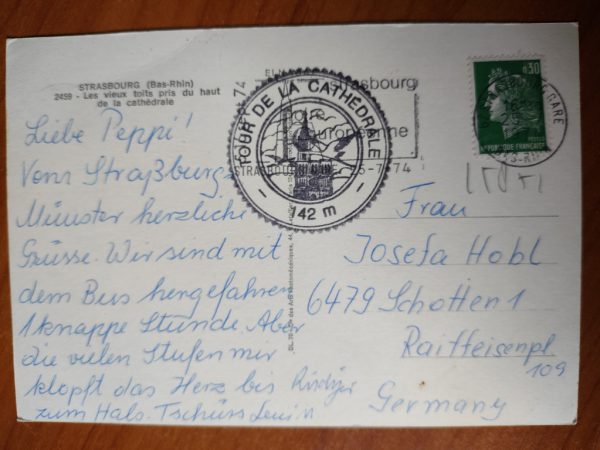 STRASBOURG (Bas-Rhin)
2459 - Les vieux toits pris du haut
de la cathédrale
Liebe Peppi!
Vom Straßburge
Münster herzliche
Grüsse. Wir sind mit
dem Bus hergefahren
1 knappe Stunde. Aber
die vielen Stufen mir
klopft das Herz bis
zum Hals. Tschüss
TOUR DE LA CATHÉDRALE
142 m
Strasbourg
européenne
STRASBOURG
-7 74
GARE
0,30
RÉPUBLIQUE FRANÇAISE
Frau
Josefa Hobl
6479 Schotten 1
Raiffeisenpl
109
Germany